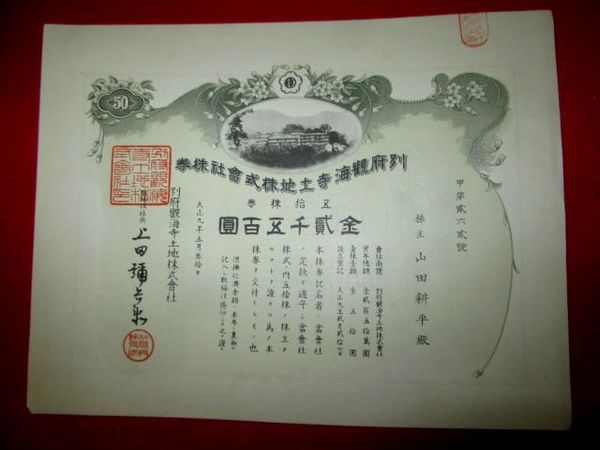 50
別府觀海寺土地株式會社株券
五拾株券
金貳千五百圓
甲第貳六貳號
株主 山田耕平殿
會社商號 別府觀海寺土地株式會社
資本總額 金貳百五拾萬圓
壹株金額 金五拾圓
設立登記 大正九年貳月貳拾
本株券記名者ハ當會社
ノ定款ヲ遵守シ當會社
株式ノ内五拾株ノ株主タ
ルコトヲ證スル爲メ本
株券ヲ交付スルモノ也
大正九年五月參拾日
別府觀海寺土地株式會社
取締役社長